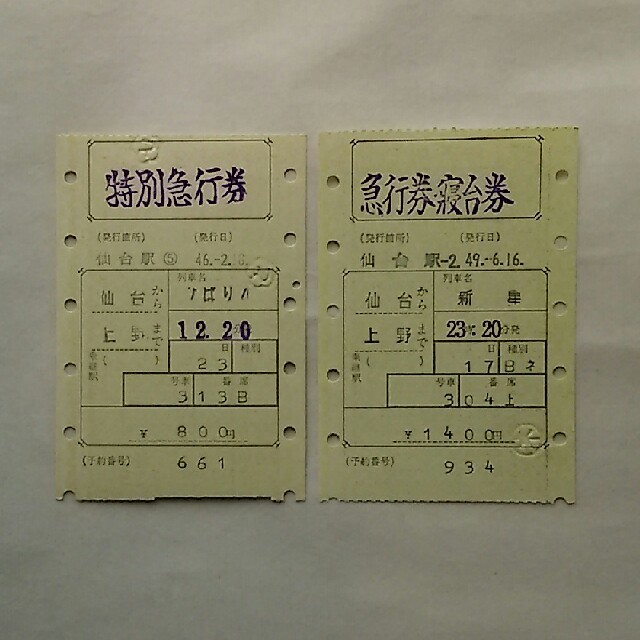 特別急行券
(発行箇所) (発行日)
仙台駅⑤ 46.-2.18.
列車名
仙台から ひばり
上野まで 12.20
乗継駅 ( ) 日 種別
23
号車 番 席
3 13B
¥ 800円
(予約番号)
661
急行券・寝台券
(発行箇所) (発行日)
仙台駅-2. 49.-6.16.
列車名
仙台から 新星
上野まで 23時20分発
乗継駅 ( ) 日 種別
17 Bネ
号車 番 席
3 04上
¥1400円
(予約番号)
934